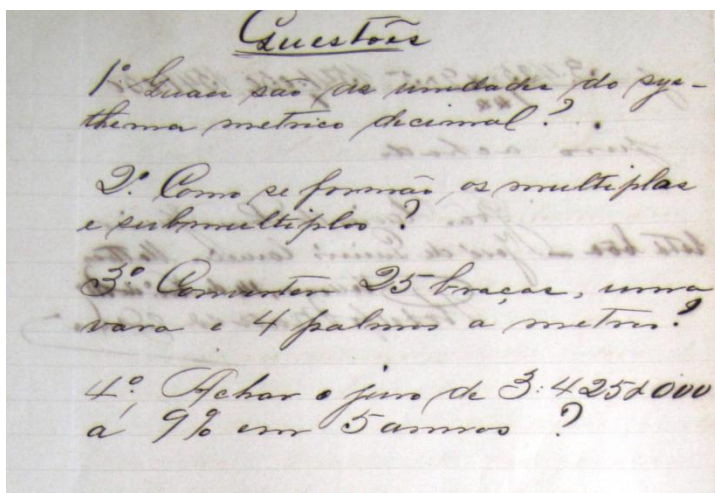 Questões
1ª Quaes são as unidades do sys-
thema metrico decimal?
2ª Como se formão os multiplos
e submultiplos?
3ª Converter 25 braças, uma
vara e 4 palmos a metros?
4ª Achar o juro de 3:425$000
á 9% em 5 annos?